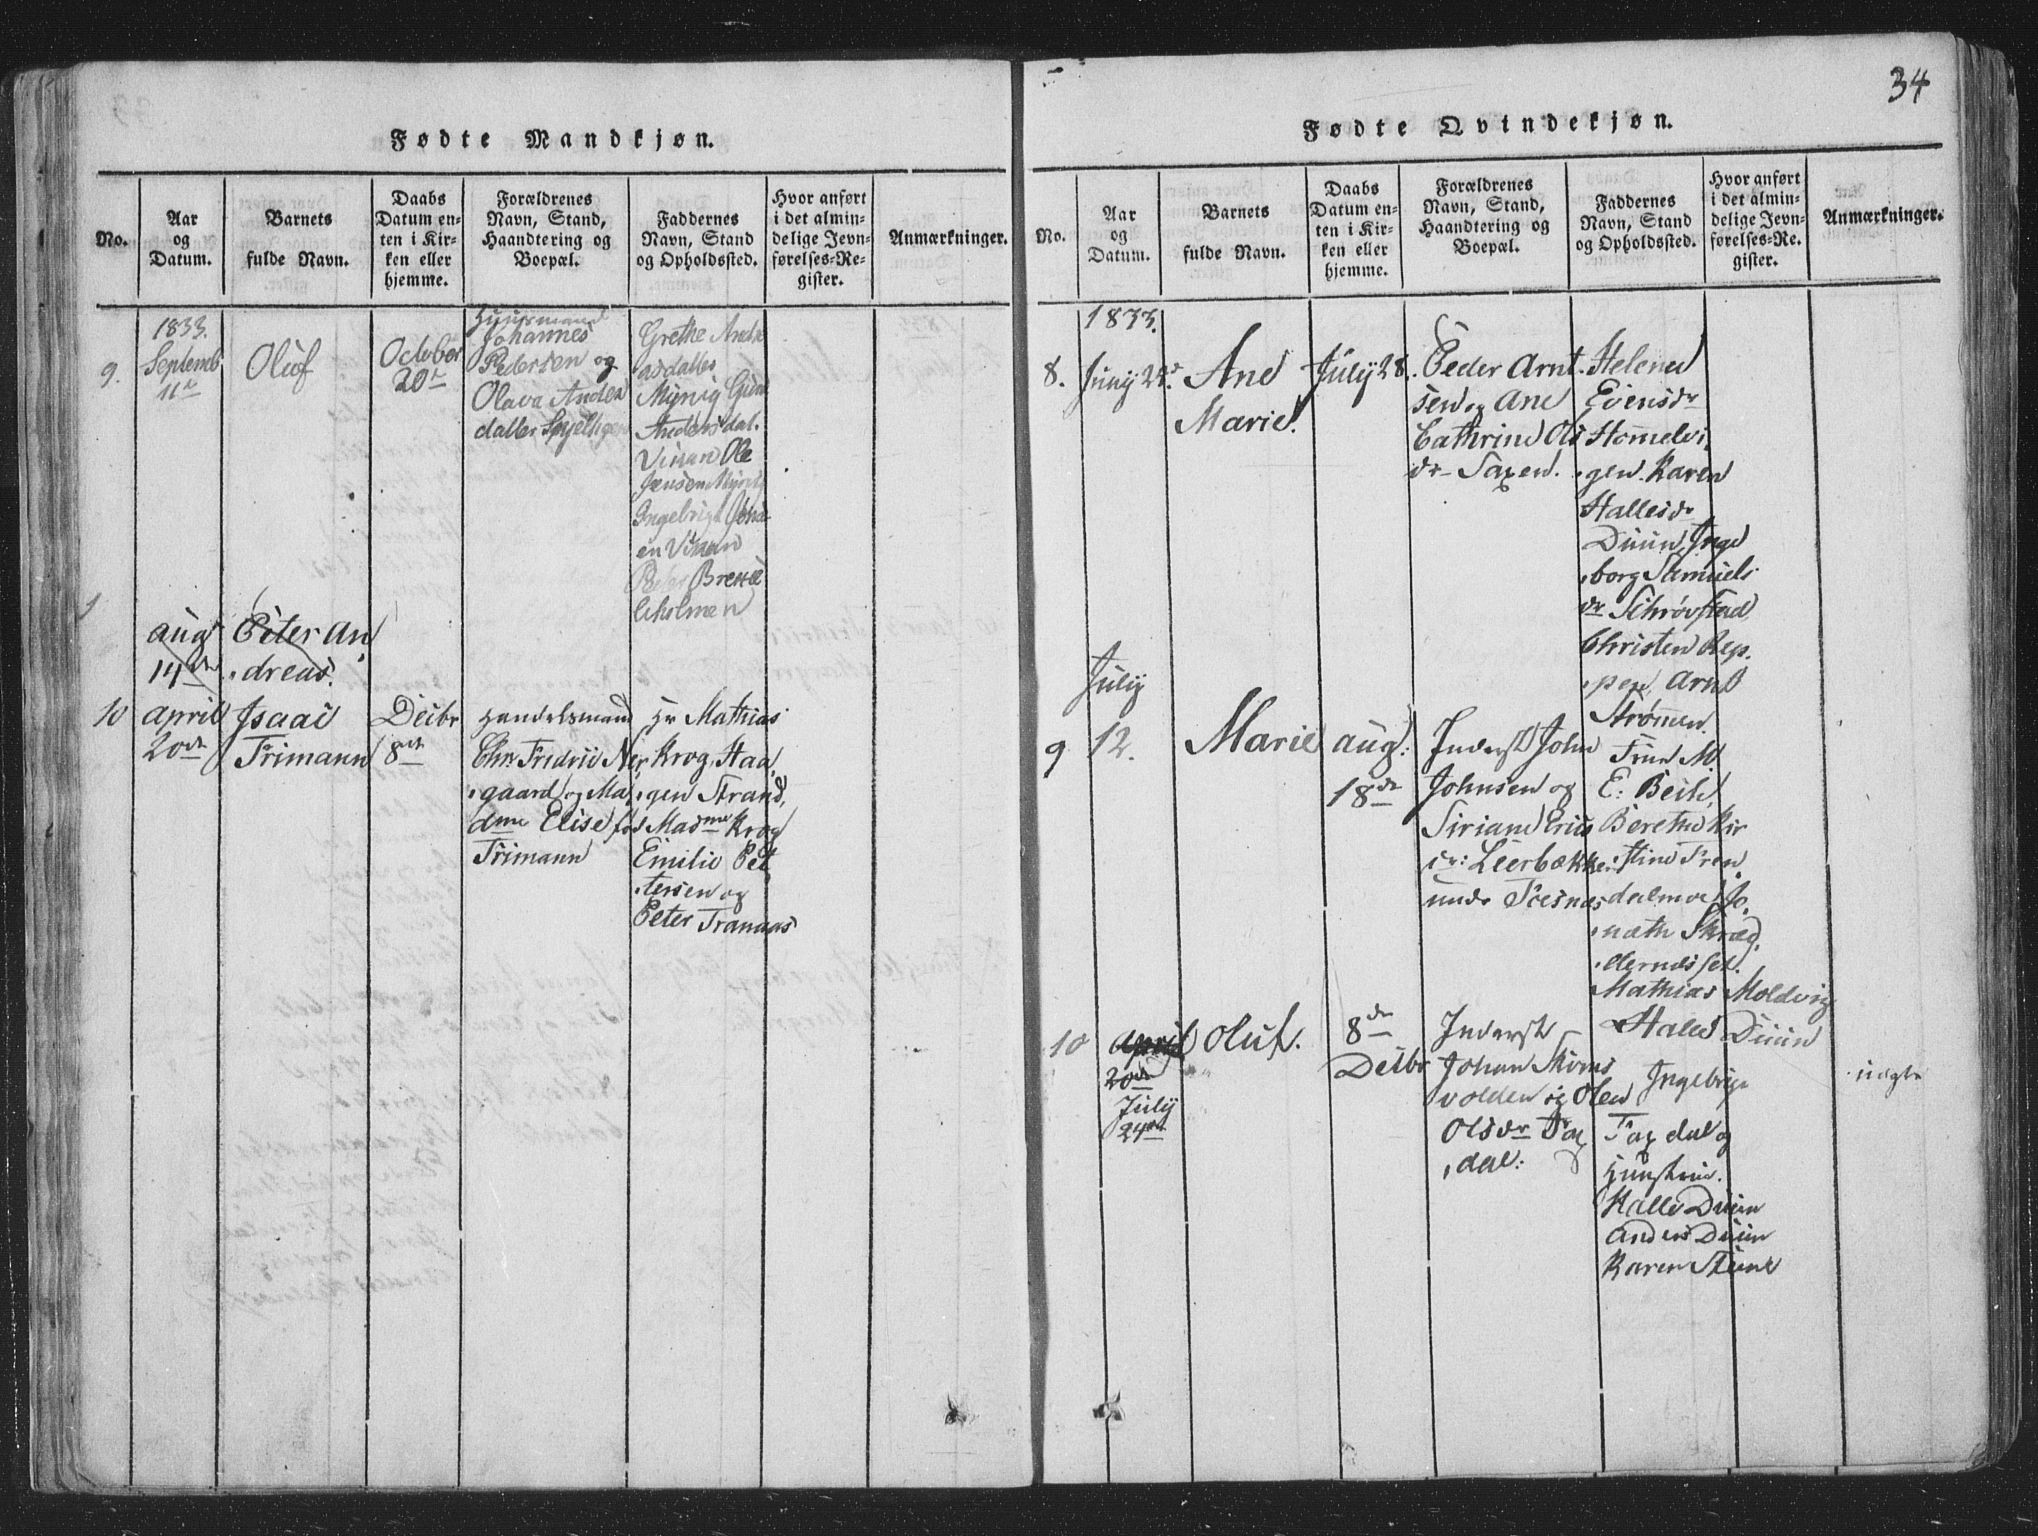 34
Fødte Mandkjøn.
No.
Aar
og
Datum.
Barnets
fulde Navn.
Daabs
Datum en-
ten i Kir-
ken eller
hjemme.
Forældrenes
Navn, Stand,
Haandtering og
Boepæl.
Faddernes
Navn, Stand
og Opholdssted.
Hvor anført
i det almin-
delige Jevn-
førelses-Re-
gister.
Anmærkninger.
9.
1833.
Septemb
11te
Oluf
October
20de
Huusmand
Johannes
Pedersen og
Olava Anders
datter
Grethe
Ole
Jensen
Ingebrigt
Peter
eholmen
Aug
14de
Peter An
dreas.
10
April
20de
Isaac
Trimann
Decbr
8de
Handelsmand
Chr. Fredric Ner
gaard og Ma
dme Elise fød
Trimann
Hr Mathias
Krog, Haa
gen Strand,
Madme Krog
Emilie Pet
tersen og
Peter Tranaas
Fødte Qvindekjøn.
No.
Aar
og
Datum.
Barnets
fulde Navn.
Daabs
Datum en-
ten i Kir-
ken eller
hjemme.
Forældrenes
Navn, Stand,
Haandtering og
Boepæl.
Faddernes
Navn, Stand
og Opholdssted.
Hvor anført
i det almin-
delige Jevn-
førelses-Re-
gister.
Anmærkninger.
1833.
8.
Juny 24de
Ane
Marie.
July 28.
Peder Arnt
sen og Ane
Cathrine Ols
dr Saxen.
Helene
Evensdr
Hommelvi
gen. Karen
Hallesdr
Duun, Inge
borg Samuels
dr Schrøvstad,
Christen Rep
pen, Arnt
Strømmen.
9
July
12.
Marie
Aug:
18de
Inderst John
Johnsen og
Siriane Erics
dr: Leerbækken
unde
Frue M.
E: Bech,
Berethe Kir
stine Tren
dalmoe, Jo
nath
Mathias Moldvig
Halle Duun
10
April
20de
July
24de
Oluf.
8de
Decbr
Inderst
Johan
volden og Olen
Olsdr Fax
dal:
Ingebrigt
Faxdal og
Hustrue.
Halle Duun
Anders Duun
Karen
uægte